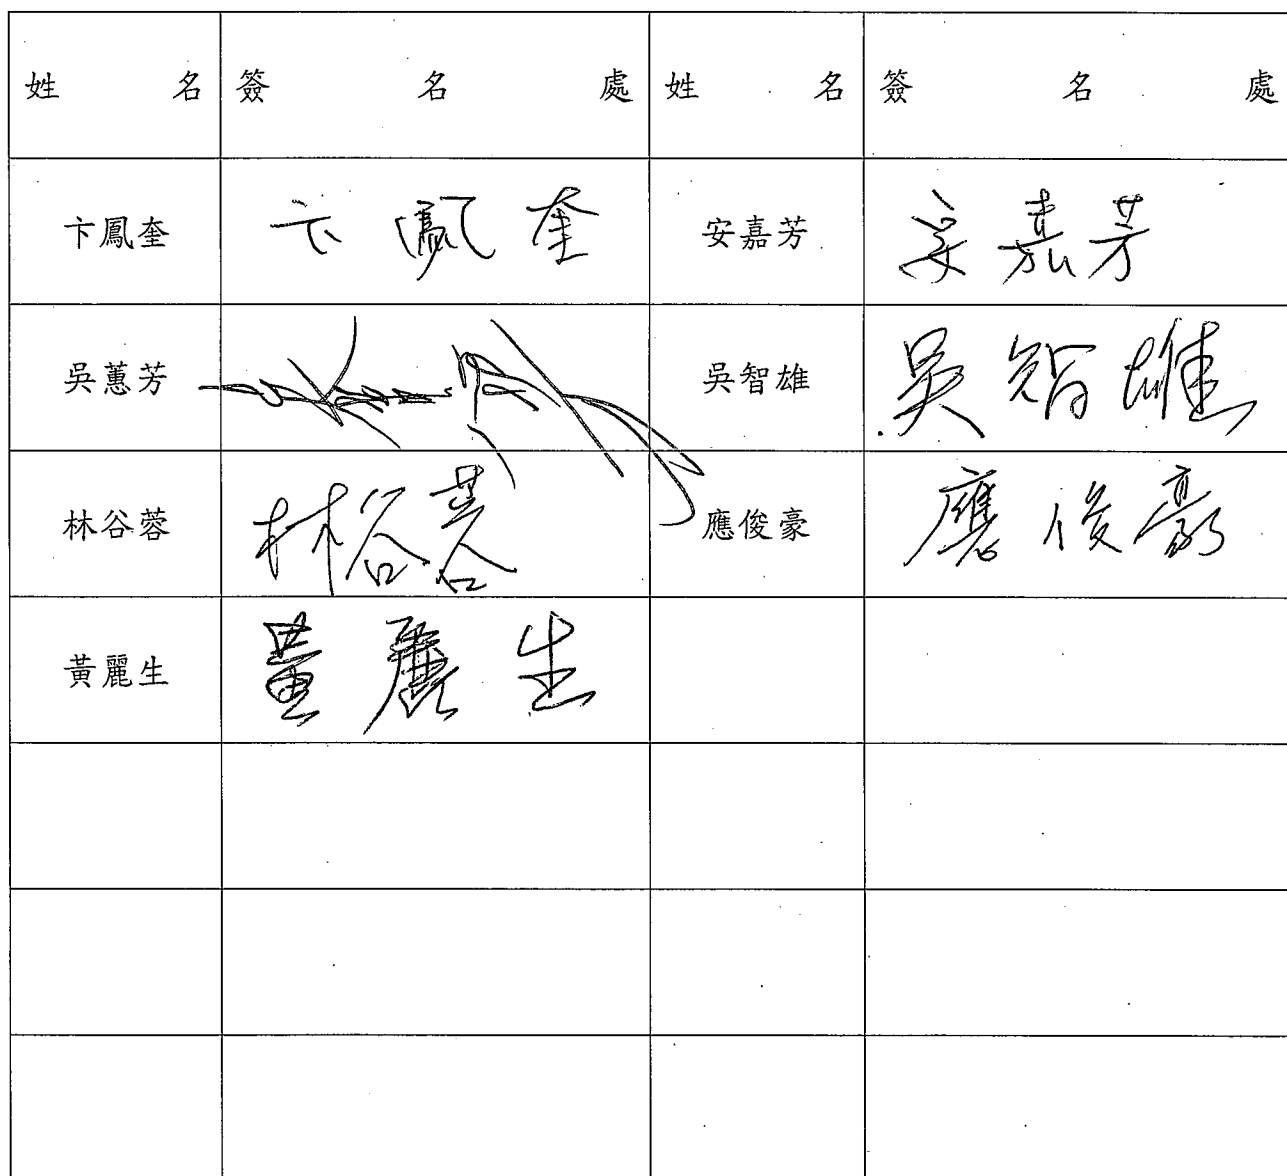 姓名 簽名處 姓名 簽名處
卞鳳奎 卞鳳奎 安嘉芳 安嘉芳
吳蕙芳 吳智雄 吳智雄
林谷蓉 林谷蓉 應俊豪 應俊豪
黃麗生 黃麗生